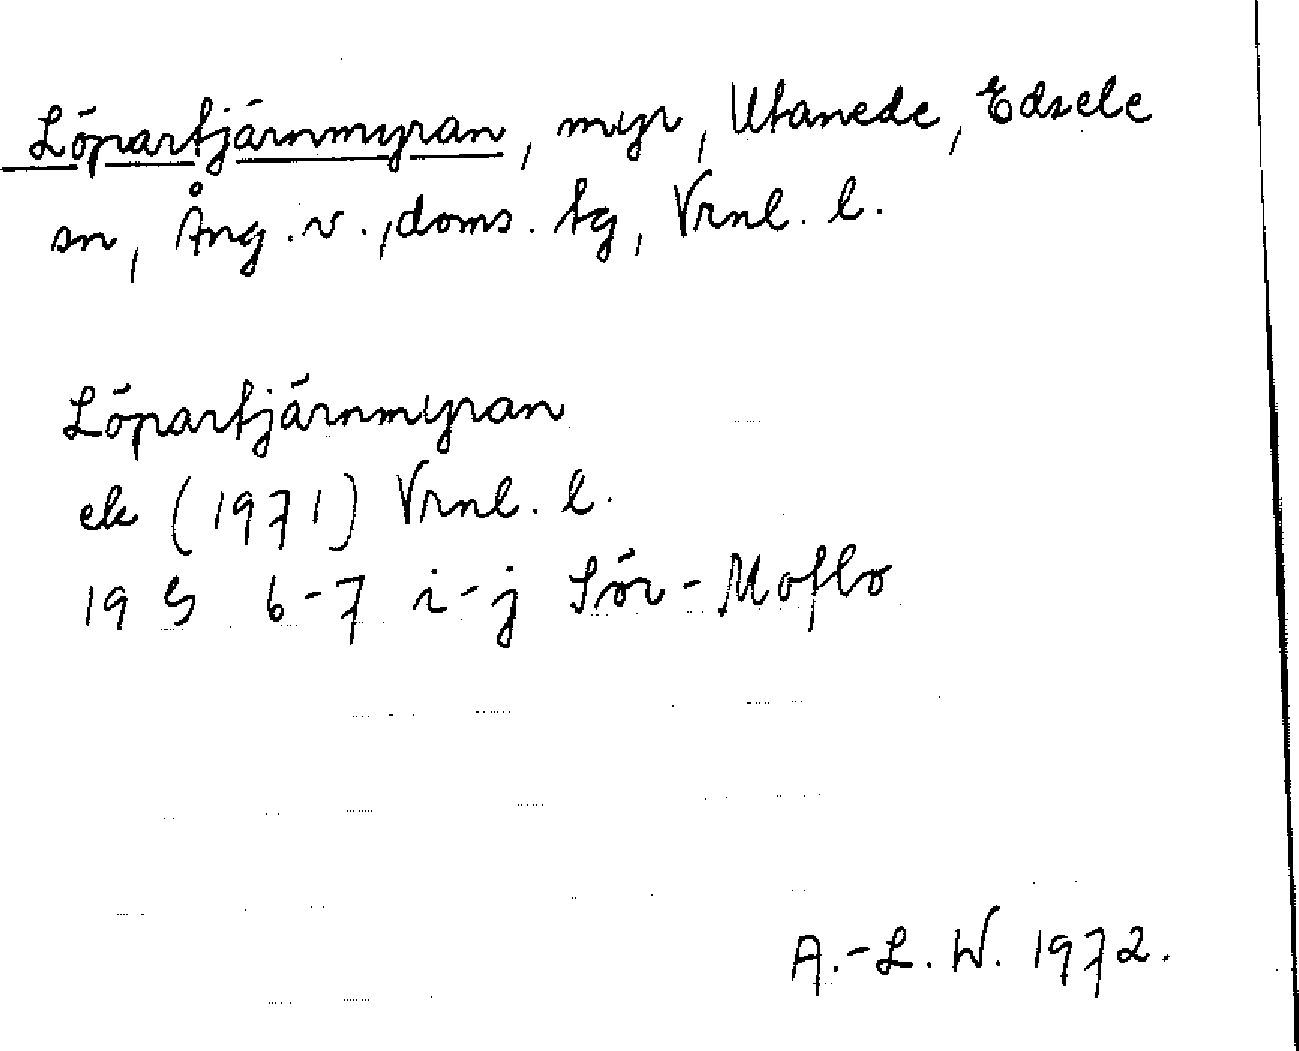 Löpartjärnmyran, myr, Utanede, Edsele
sn, Ång. v., doms. tg, Vrnl. l.
Löpartjärnmyran
ek (1971) Vrnl. l.
19 G 6-7 i-j Sör-Moflo
A.-L. W. 1972.